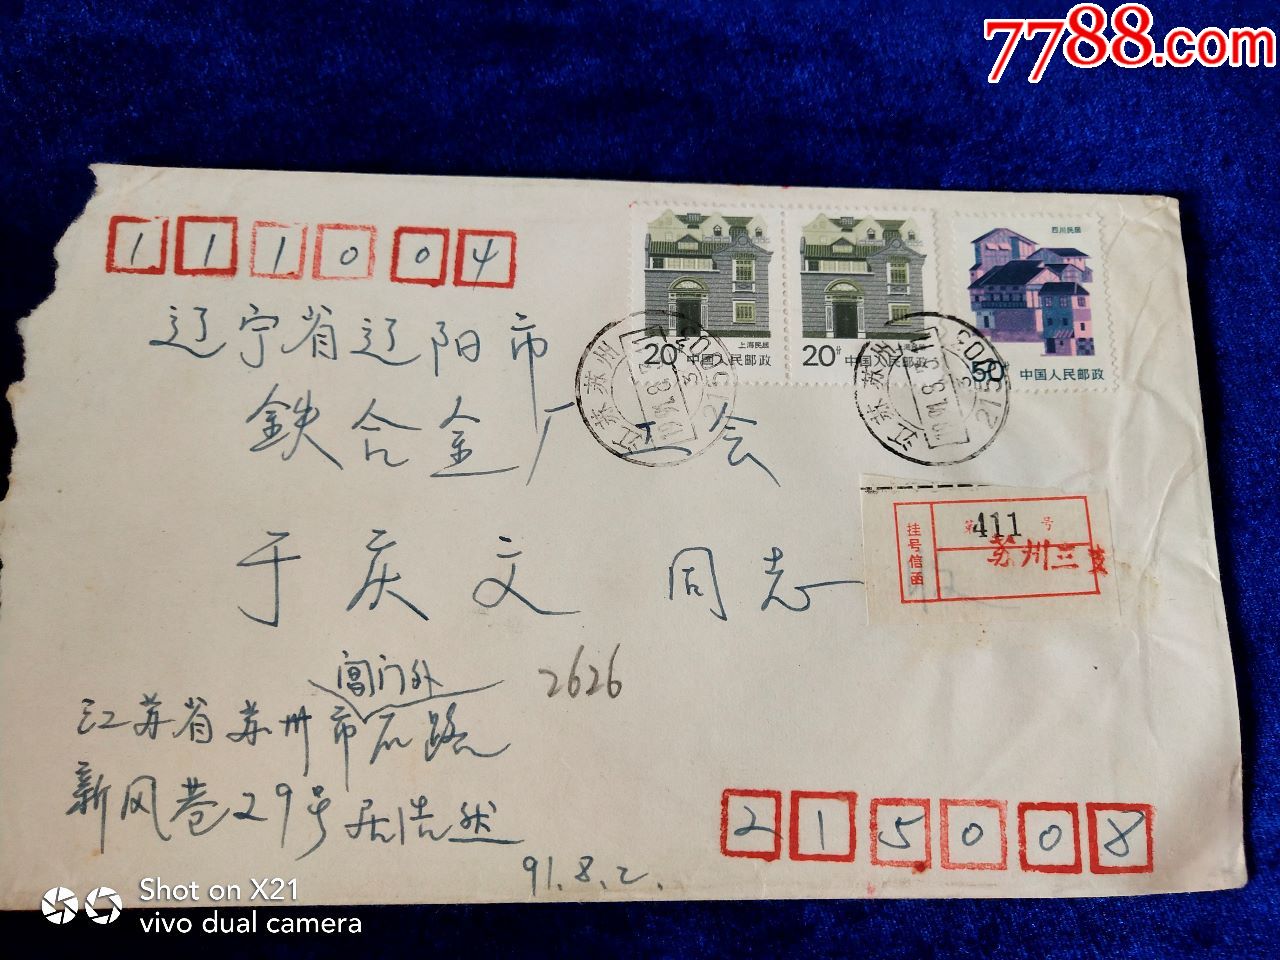 7788.com
111004
辽宁省辽阳市
鉄合金厂工会
于庆文 同志
上海民居
20分 中国人民邮政
20分 中国人民邮政
四川民居
50分 中国人民邮政
江苏 苏州
江苏 苏州
挂号信函
第411号
苏州三支
2626
阊门外
江苏省苏州市石路
新风巷29号居浩然
91.8.2.
215008
Shot on X21
vivo dual camera